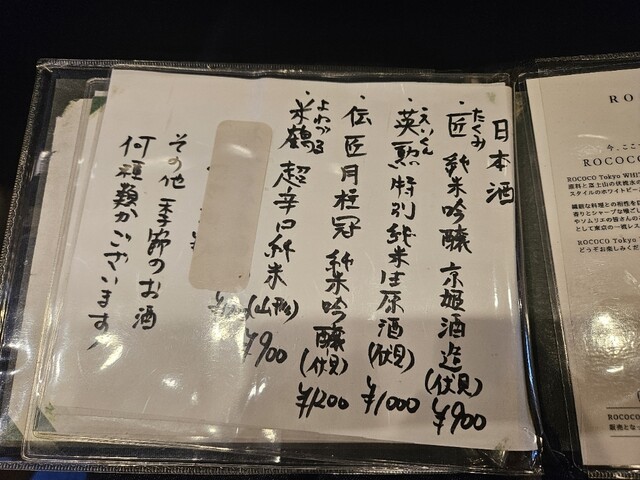 日本酒
たくみ
・匠 純米吟醸 京姫酒造(伏見)¥900
えいくん
・英勲 特別純米生原酒(伏見)¥1000
・伝匠月桂冠 純米吟醸(伏見)¥1200
よねづる
・米鶴 超辛口純米(山形)¥900
その他 季節のお酒
何種類かございます!
RO
今、ここ
ROCOCO
ROCOCO Tokyo WHI
原料と富士山の伏流水
スタイルのホワイトビー
繊細な料理との相性を
香りとシャープな喉ごし
やソムリエの皆さんの
として東京の一流レス
ROCOCO Tokyo
どうぞお楽しみくだ
ROCOCO
販売となっ